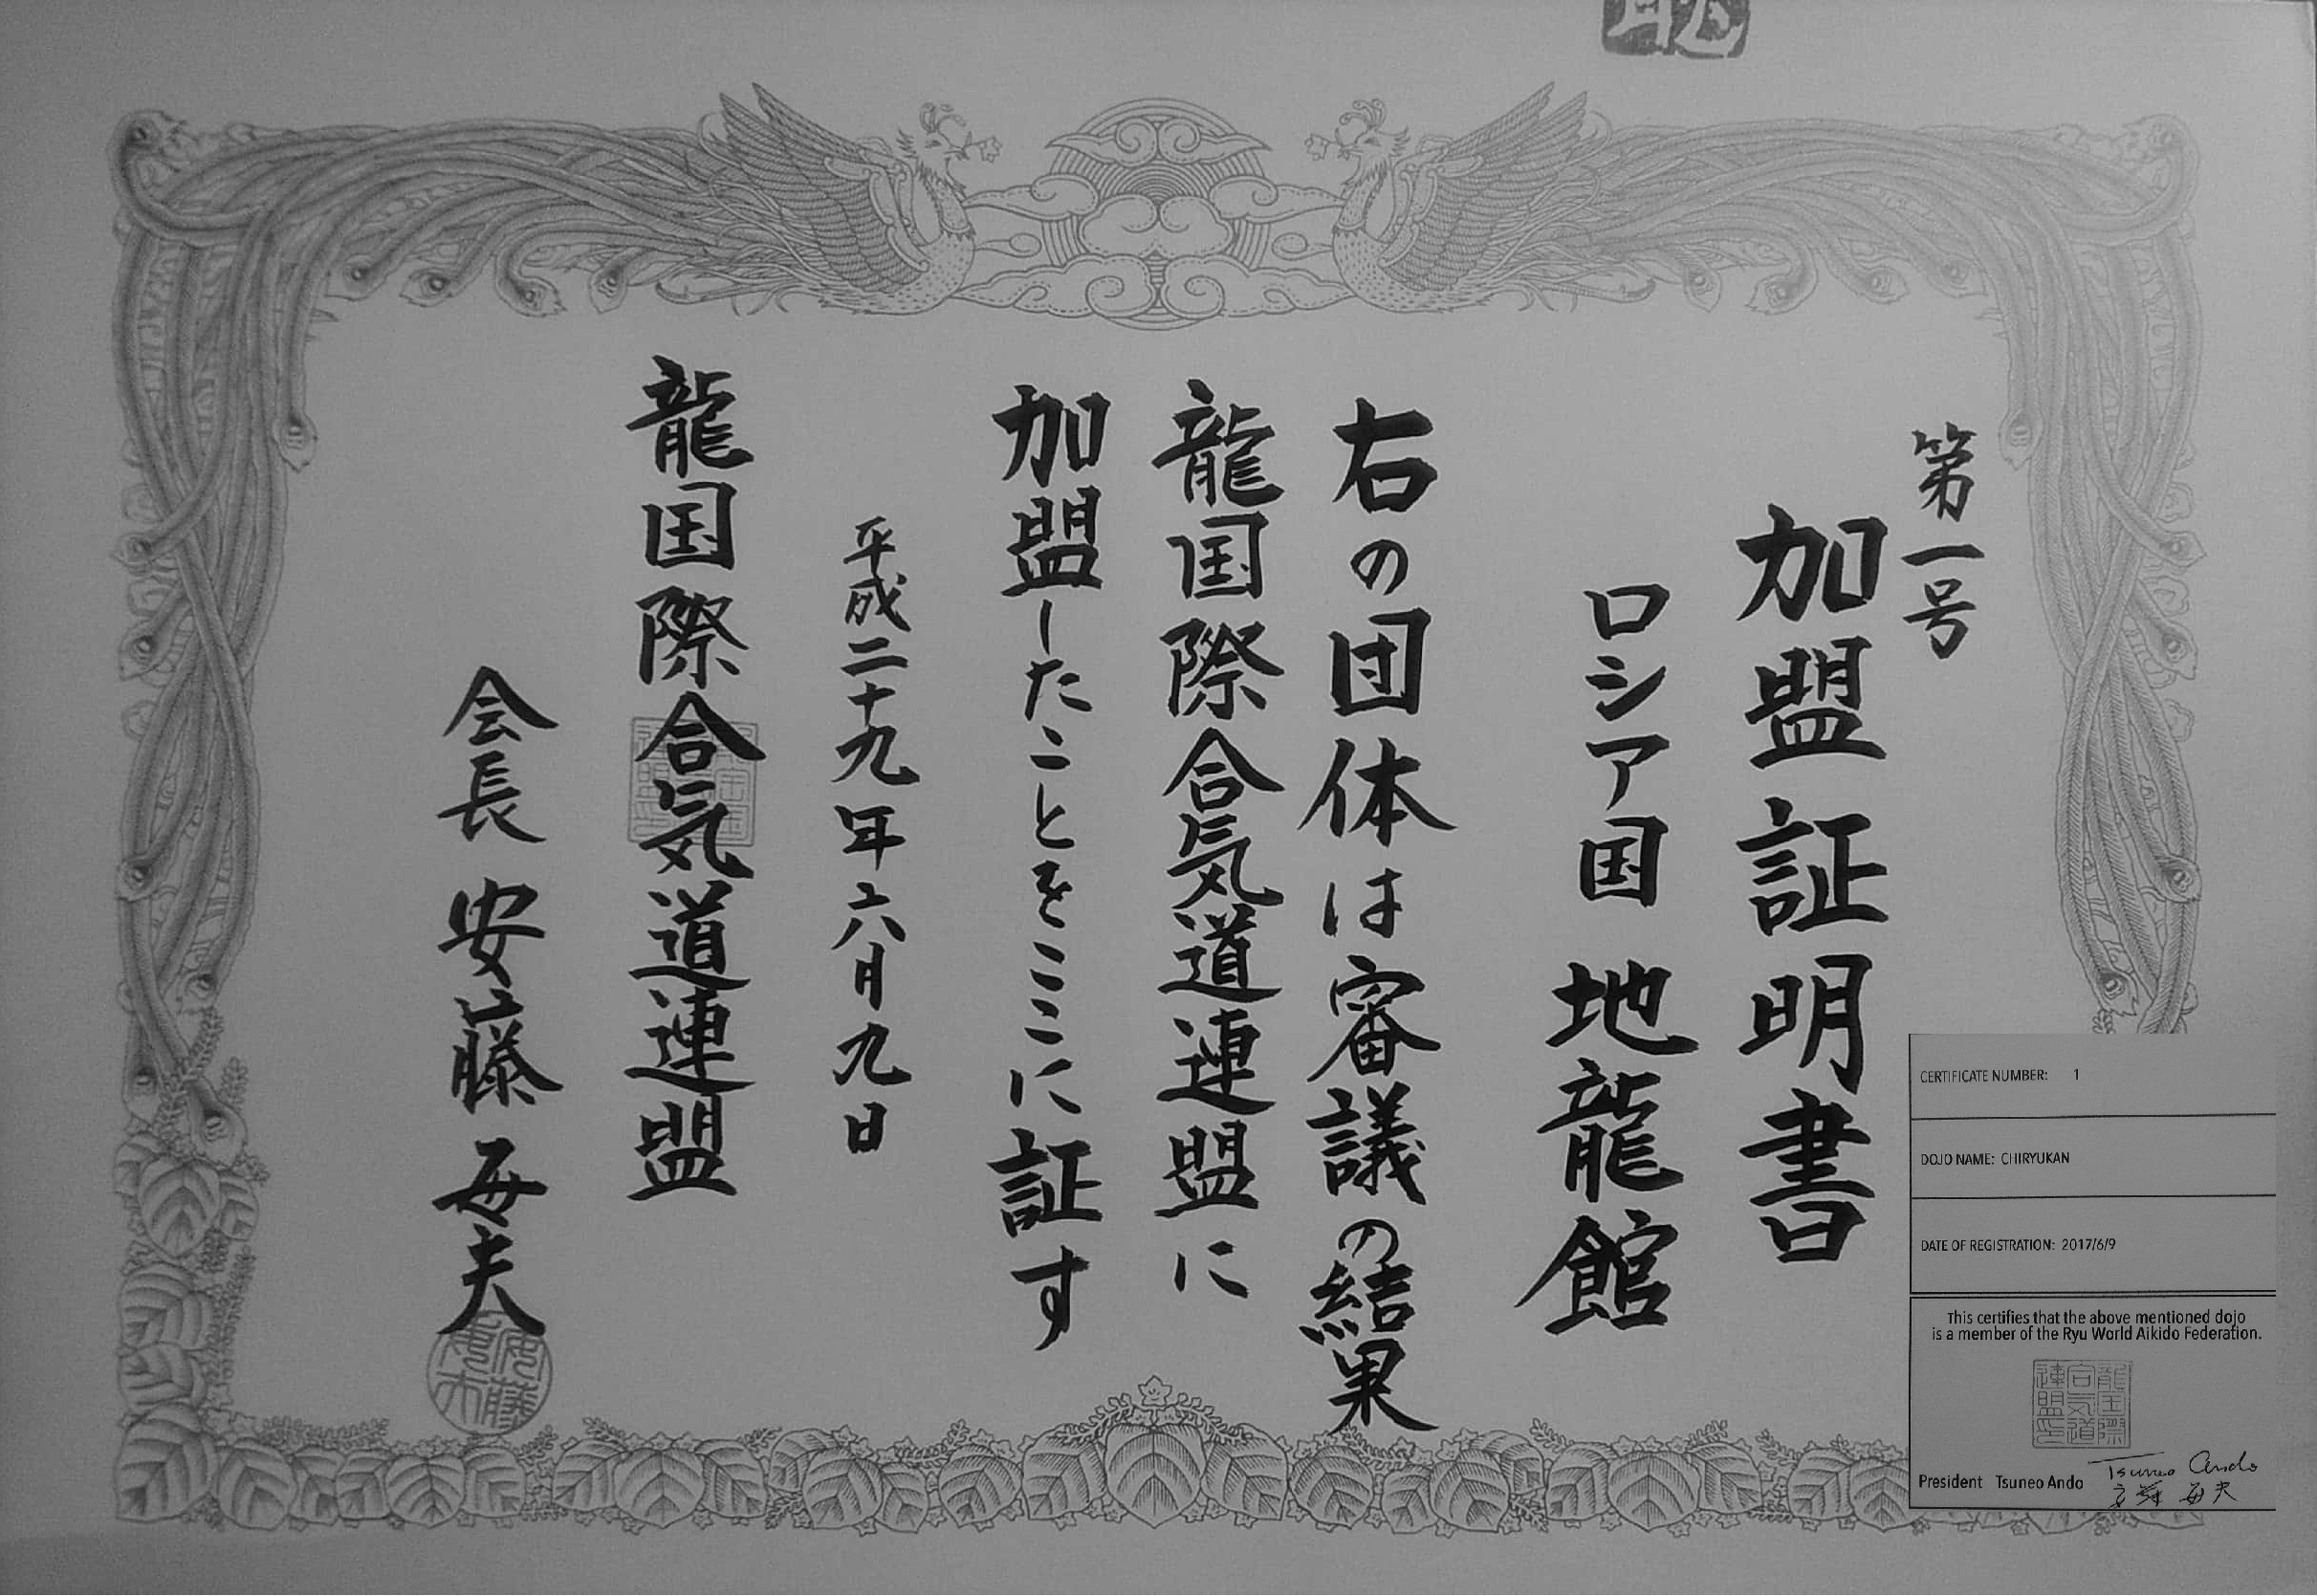 第一号
加盟証明書
ロシア国 地龍館
右の団体は審議の結果
龍国際合気道連盟に
加盟したことをここに証す
平成二十九年六月九日
龍国際合気道連盟
会長 安藤 毎夫
CERTIFICATE NUMBER: 1
DOJO NAME: CHIRYUKAN
DATE OF REGISTRATION: 2017/6/9
This certifies that the above mentioned dojo
is a member of the Ryu World Aikido Federation.
龍国際
合気道
連盟印
Tsuneo Ando
President Tsuneo Ando
安藤 毎夫